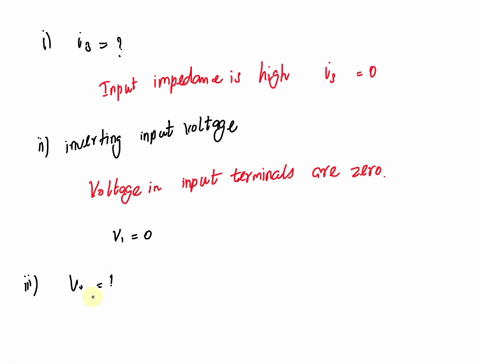 i) i₃ = ?
Input impedance is high i₃ = 0
ii) inverting input voltage
Voltage in input terminals are zero.
V₁ = 0
iii) = ?